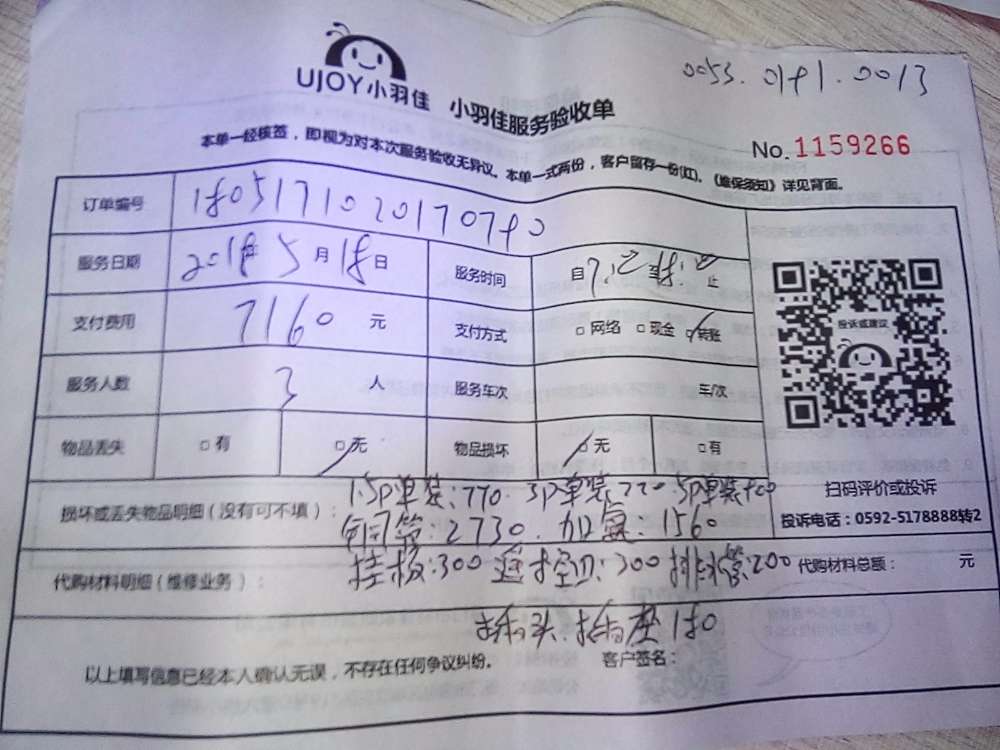 UJOY小羽佳 小羽佳服务验收单
No.1159266
本单一经核签，即视为对本次服务验收无异议。本单一式两份，客户留存一份(红)。《维保须知》详见背面。
订单编号
服务日期 2018年5月18日 服务时间 自 至 止
支付费用 7160 元 支付方式 □网络 □现金 □转账
服务人数 3 人 服务车次 车/次
物品丢失 □有 □无 物品损坏 □无 □有
投诉或建议
扫码评价或投诉
投诉电话：0592-5178888转2
1.5P单装:770. 3P单装 5P单装
损坏或丢失物品明细（没有可不填）： 铜管:2730. 加氟:1560
代购材料明细（维修业务）： 挂板:300 遥控:300 排水管:200 代购材料总额： 元
插头.插座 180
以上填写信息已经本人确认无误，不存在任何争议纠纷。 客户签名：